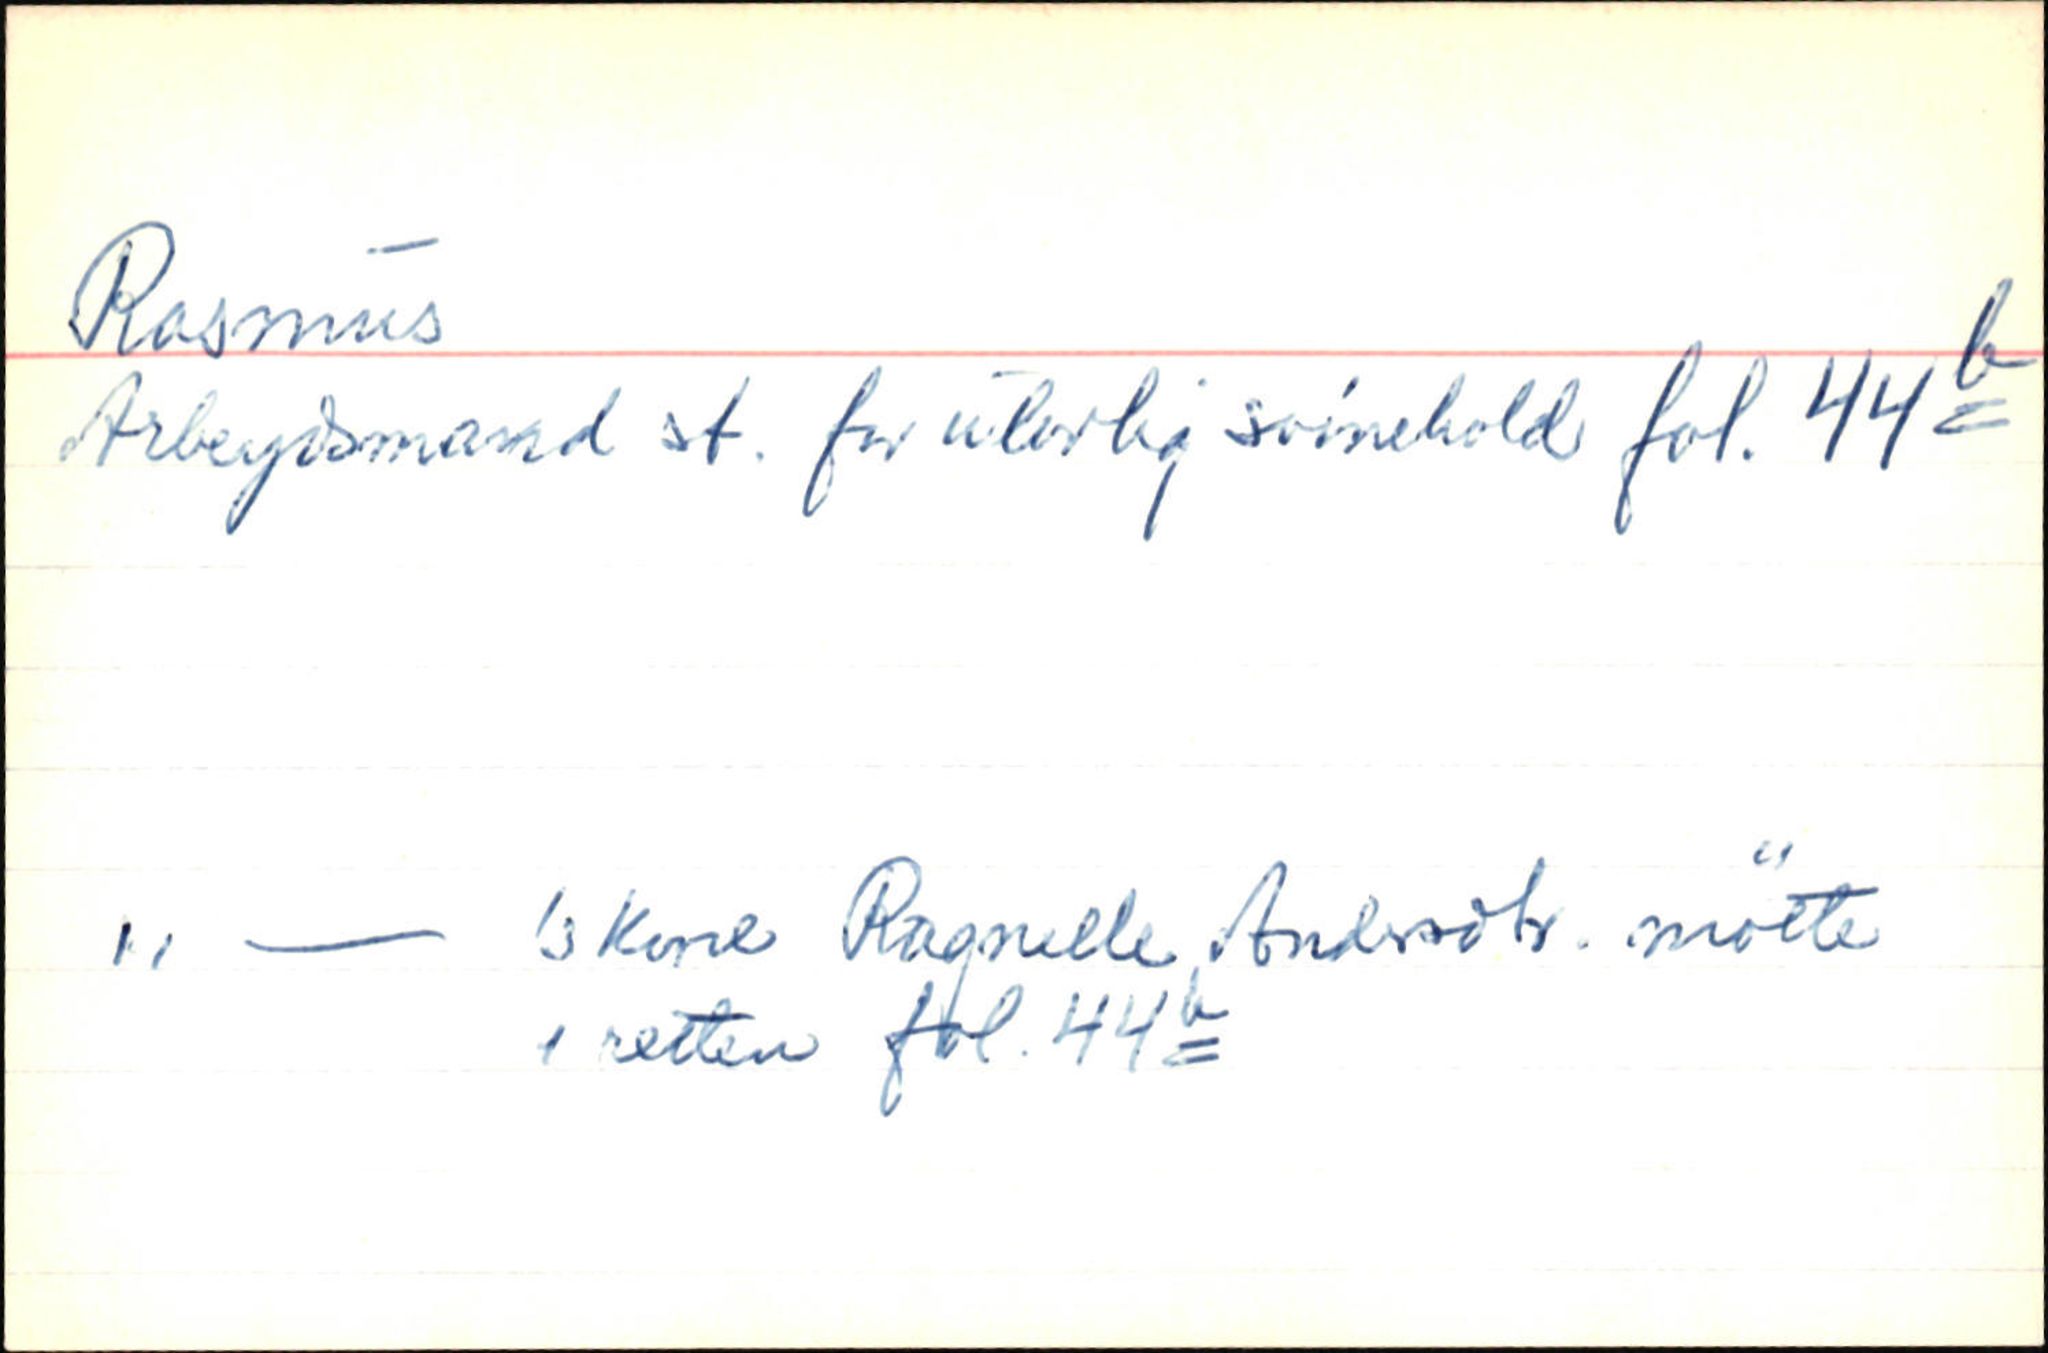 Rasmus
Arbeydsmand st. for ulovlig svinehold fol. 44 b
" — 's Kone Ragnelle Andersdtr. mötte
i retten fol. 44 b